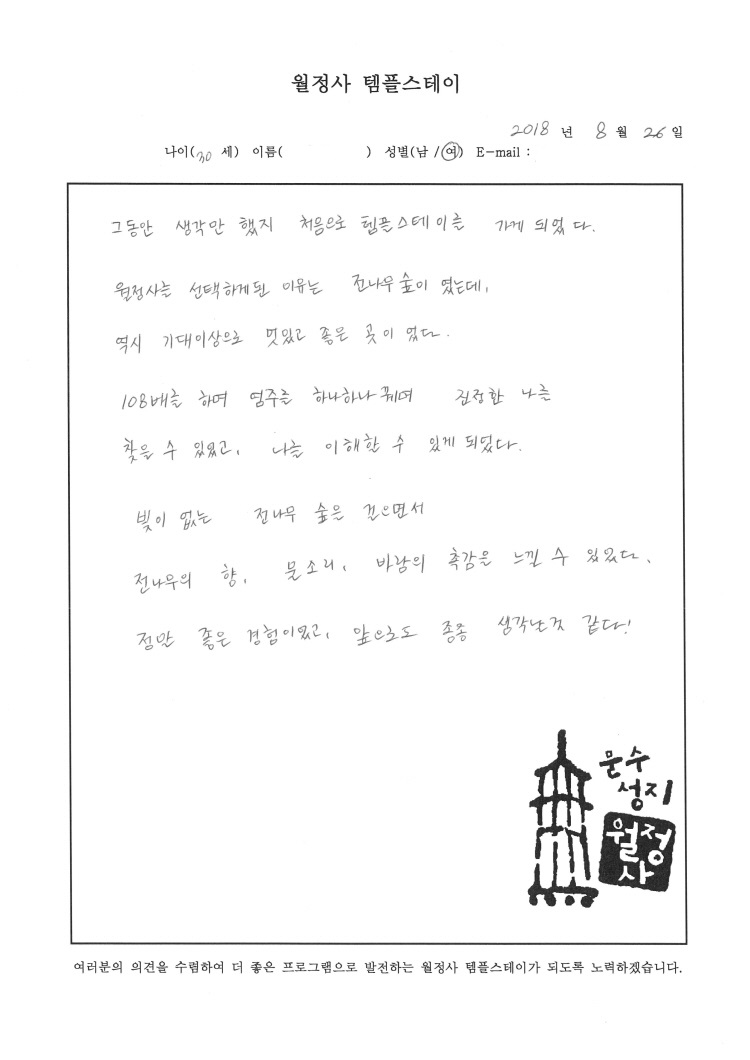 월정사 템플스테이
2018 년 8 월 26 일
나이(30 세) 이름( ) 성별(남 /여) E-mail :
그동안 생각만 했지 처음으로 템플스테이를 가게 되었다.
월정사를 선택하게된 이유는 전나무숲이 였는데,
역시 기대이상으로 멋있고 좋은 곳이 었다.
108배를 하며 염주를 하나하나 꿰며 진정한 나를
찾을 수 있었고, 나를 이해할 수 있게 되었다.
빛이 없는 전나무 숲을 걸으면서
전나무의 향, 물소리, 바람의 촉감을 느낄 수 있었다.
정말 좋은 경험이었고, 앞으로도 종종 생각날것 같다!
문수
성지
월정
사
여러분의 의견을 수렴하여 더 좋은 프로그램으로 발전하는 월정사 템플스테이가 되도록 노력하겠습니다.